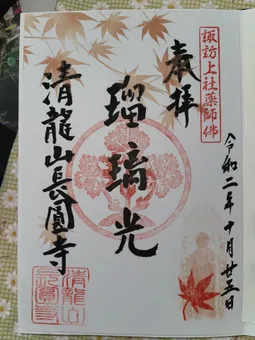 諏訪上社薬師佛
奉拝
令和二年十月廿五日
瑠璃光
清龍山長圓寺
清龍山
長圓寺